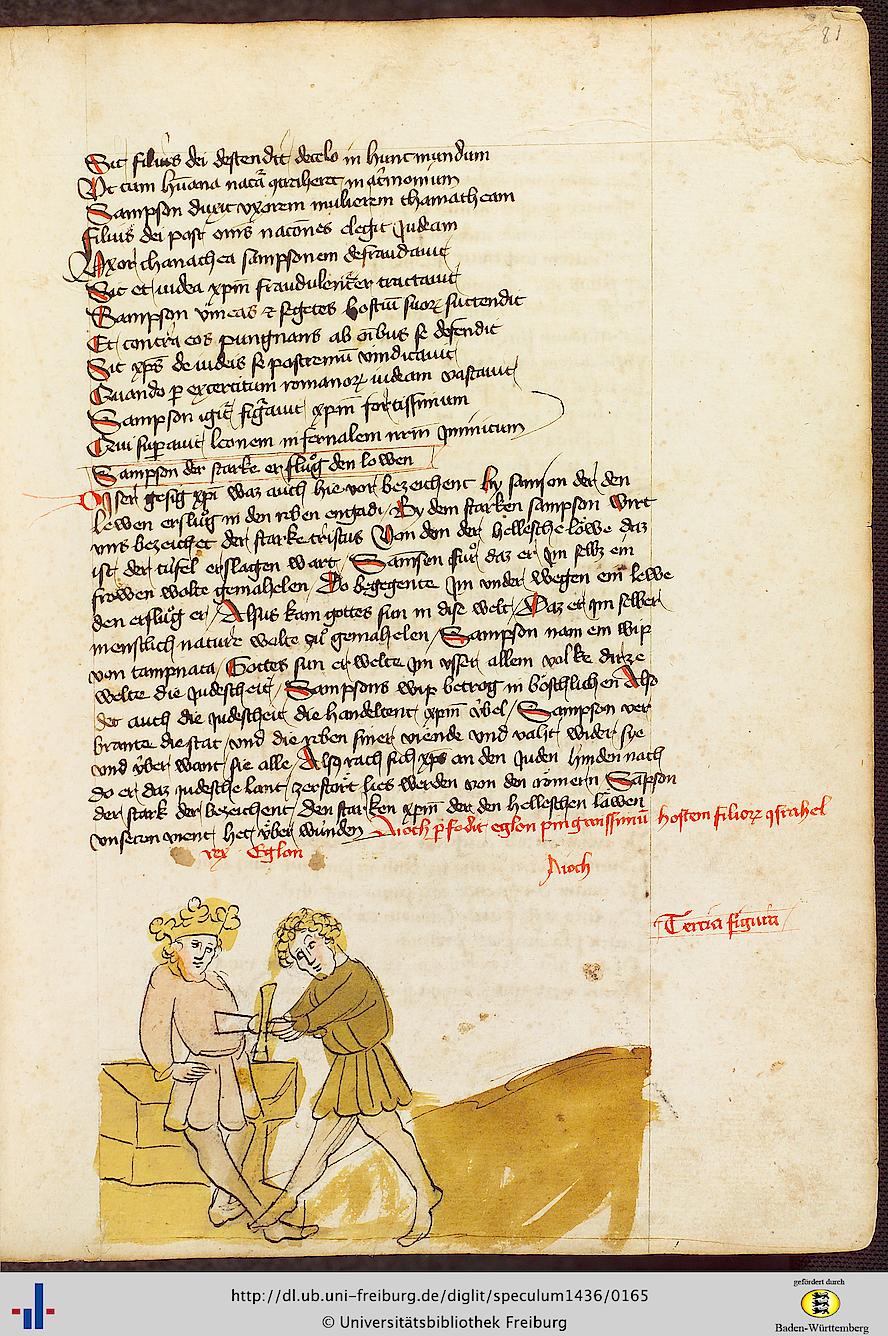 81
Sic filius dei descendit de celo in hunc mundum
Vt cum hūana natā 9traheret mat'monium
Sampson duxit vxorem mulierem thamatheam
Filius dei post om̄s nacōnes elegit Judeam
Vxor thanathea sampsonem defraudauit
Sic et iudea xp̄m fraudulent'er tractauit
Sampson vineas ⁊ segetes hostiū suoꝝ succendit
Et contra eos pungnans ab oībus se defendit
Sic xp̄s de iudeis se postremū vindicauit
Quando ꝑ excercitum romanoꝝ iudeam vastauit
Sampson igit' fig'auit xp̄m fortissimum
Qui supauit leonem infernalem nr̄m Jnimicum
Sampson der starke erslůg den lowen
Diser gesig xpi waz auch hie vor bezeichent by samson der den
lewen erslůg in den reben engadi / By dem starken sampson wirt
vns bezeichet der starke cristus Von dem der hellesche löwe daz
ist der tüfel erslagen wart / Samsen fůr daz er Jm selbz ein
frowen wolte gemahelen / Do begegente Jm vnder wegen ein lewe
den erslůg er / Alsus kam gottes sun in dise welt / Daz er Jm selber
menschlich nature wolte zů gemahelen / Sampson nam ein wip
von tampnata / Gottes sun er welte Jm vsser allem volke dirze
welte die Judescheit / Sampsons wip betrog in böschlichen Also
det auch die Judescheit die handeltent xp̄m v̈bel / Sampson ver
brante die stat / vnd die reben siner viende vnd vaht wider sye
vnd v̈ber want sie alle / Alsus rach sich xp̄s an den Juden hinden nach
do er daz Judesche lant / zerstört lies werden von den römern Sāpson
der stark der bezeichent / Den starken xp̄m der den helleschen läwen
vnseren vient / het v̈ber wunden Aioth ꝑfodit eglon pingwissimū hostem filioꝝ ysrahel
rex Eglon
Aioth
Tercia figura
http://dl.ub.uni-freiburg.de/diglit/speculum1436/0165
© Universitätsbibliothek Freiburg
gefördert durch
Baden-Württemberg